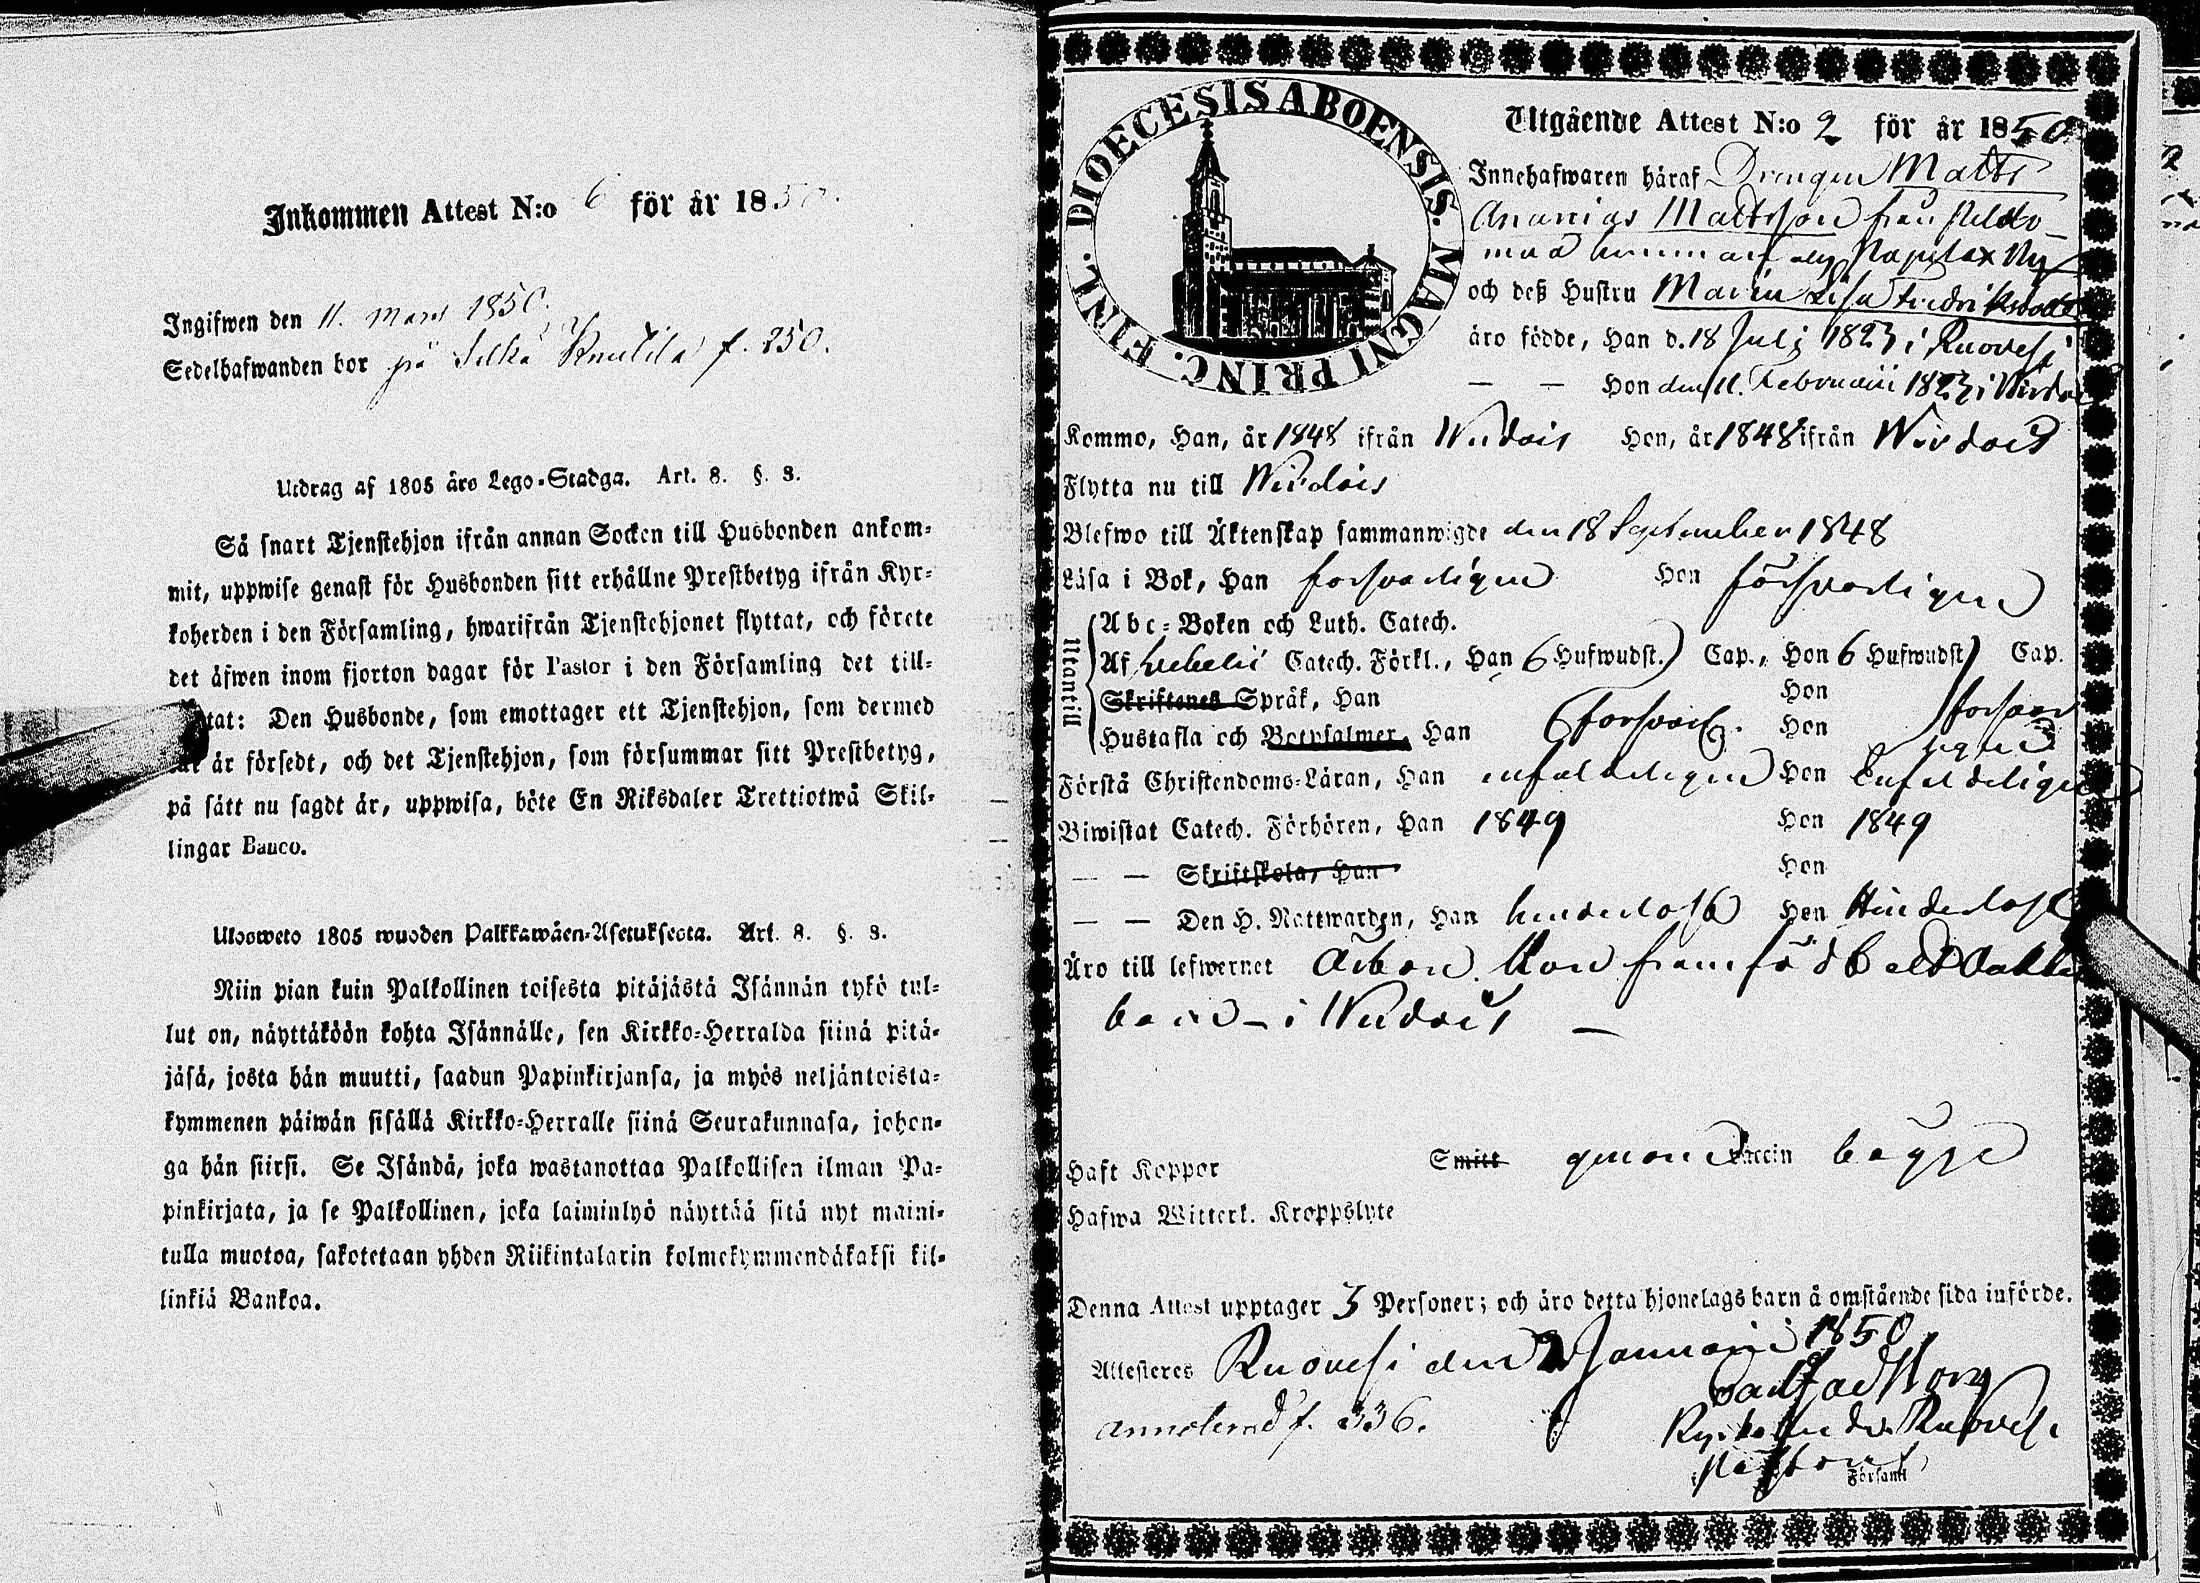 Inkommen Attest N:o 6 för år 1850.
Ingifwen den 11. Mars 1850.
Sedelhafwanden bor på f. 250.
Utdrag af 1805 års Lego-Stadga. Art. 8. §. 3.
Så snart Tjenstehjon ifrån annan Socken till Husbonden ankom-
mit, uppwise genast för Husbonden sitt erhållne Prestbetyg ifrån Kyr-
koherden i den Församling, hwarifrån Tjenstehjonet flyttat, och förete
det äfwen inom fjorton dagar för Pastor i den Församling det till-
tat: Den Husbonde, som emottager ett Tjenstehjon, som dermed
är försedt, och det Tjenstehjon, som försummar sitt Prestbetyg,
på sätt nu sagdt är, uppwisa, böte En Riksdaler Trettiotwå Skil-
lingar Banco.
Ulosweto 1805 wuoden Palkkawäen-Asetuksesta. Art. 8. §. 3.
Niin pian kuin Palkollinen toisesta pitäjästä Isännän tykö tul-
lut on, näyttäköön kohta Isännälle, sen Kirkko-Herralda siinä pitä-
jäsä, josta hän muutti, saadun Papinkirjansa, ja myös neljäntoista-
kymmenen päiwän sisällä Kirkko-Herralle siinä Seurakunnasa, johon-
ga hän siirsi. Se Isändä, joka wastanottaa Palkollisen ilman Pa-
pinkirjata, ja se Palkollinen, joka laiminlyö näyttää sitä nyt maini-
tulla muotoa, sakotetaan yhden Riikintalarin kolmekymmendäkaksi kil-
linkiä Bankoa.
DIOECESIS ABOENSIS. MAGNI PRINC. FINL.
Utgående Attest N:o 2 för år 1850.
Innehafwaren häraf Drengen Matts
Ananias Mattsson från
och deß Hustru Maria Lisa Fredriksdotter
äro födde, Han d. 18 Julj 1823 i Ruovesi
— — Hon den 11. Februarii 1823 i Wirdois
Kommo, Han, år 1848 ifrån Wirdois Hon, år 1848 ifrån Wirdois
Flytta nu till Wirdois
Blefwo till Äktenskap sammanwigde den 18 September 1848
Läsa i Bok, Han försvarligen Hon försvarligen
Utantill
Abc-Boken och Luth. Catech.
Af Catech. Förkl., Han 6 Hufwudst. Cap., Hon 6 Hufwudst Cap.
Skriftenes Språk, Han Hon
Hustafla och Botpsalmer, Han försvarl. Hon försvarligen
Förstå Christendoms-Läran, Han enfaldeligen Hon Enfaldeligen
Biwistat Catech. Förhören, Han 1849 Hon 1849
— — Skriftskola, Han Hon
— — Den H. Nattwarden, Han hinderlöst Hon Hinderlöst
Äro till lefwernet
barn – i Wirdois —
Haft Koppor Smitt genom Vaccin bägge
Hafwa Witterl. Kroppslyte
Denna Attest upptager 3 Personer; och äro detta hjonelags barn å omstående sida införde.
Attesteres Ruovesi den 2 Januarii 1850
f. 336.
Församl